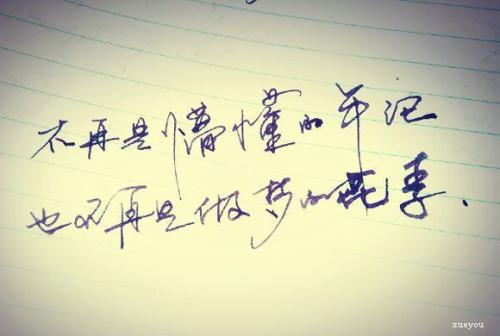 不再是懵懂的年记
也不再是做梦的花季.
xueyou